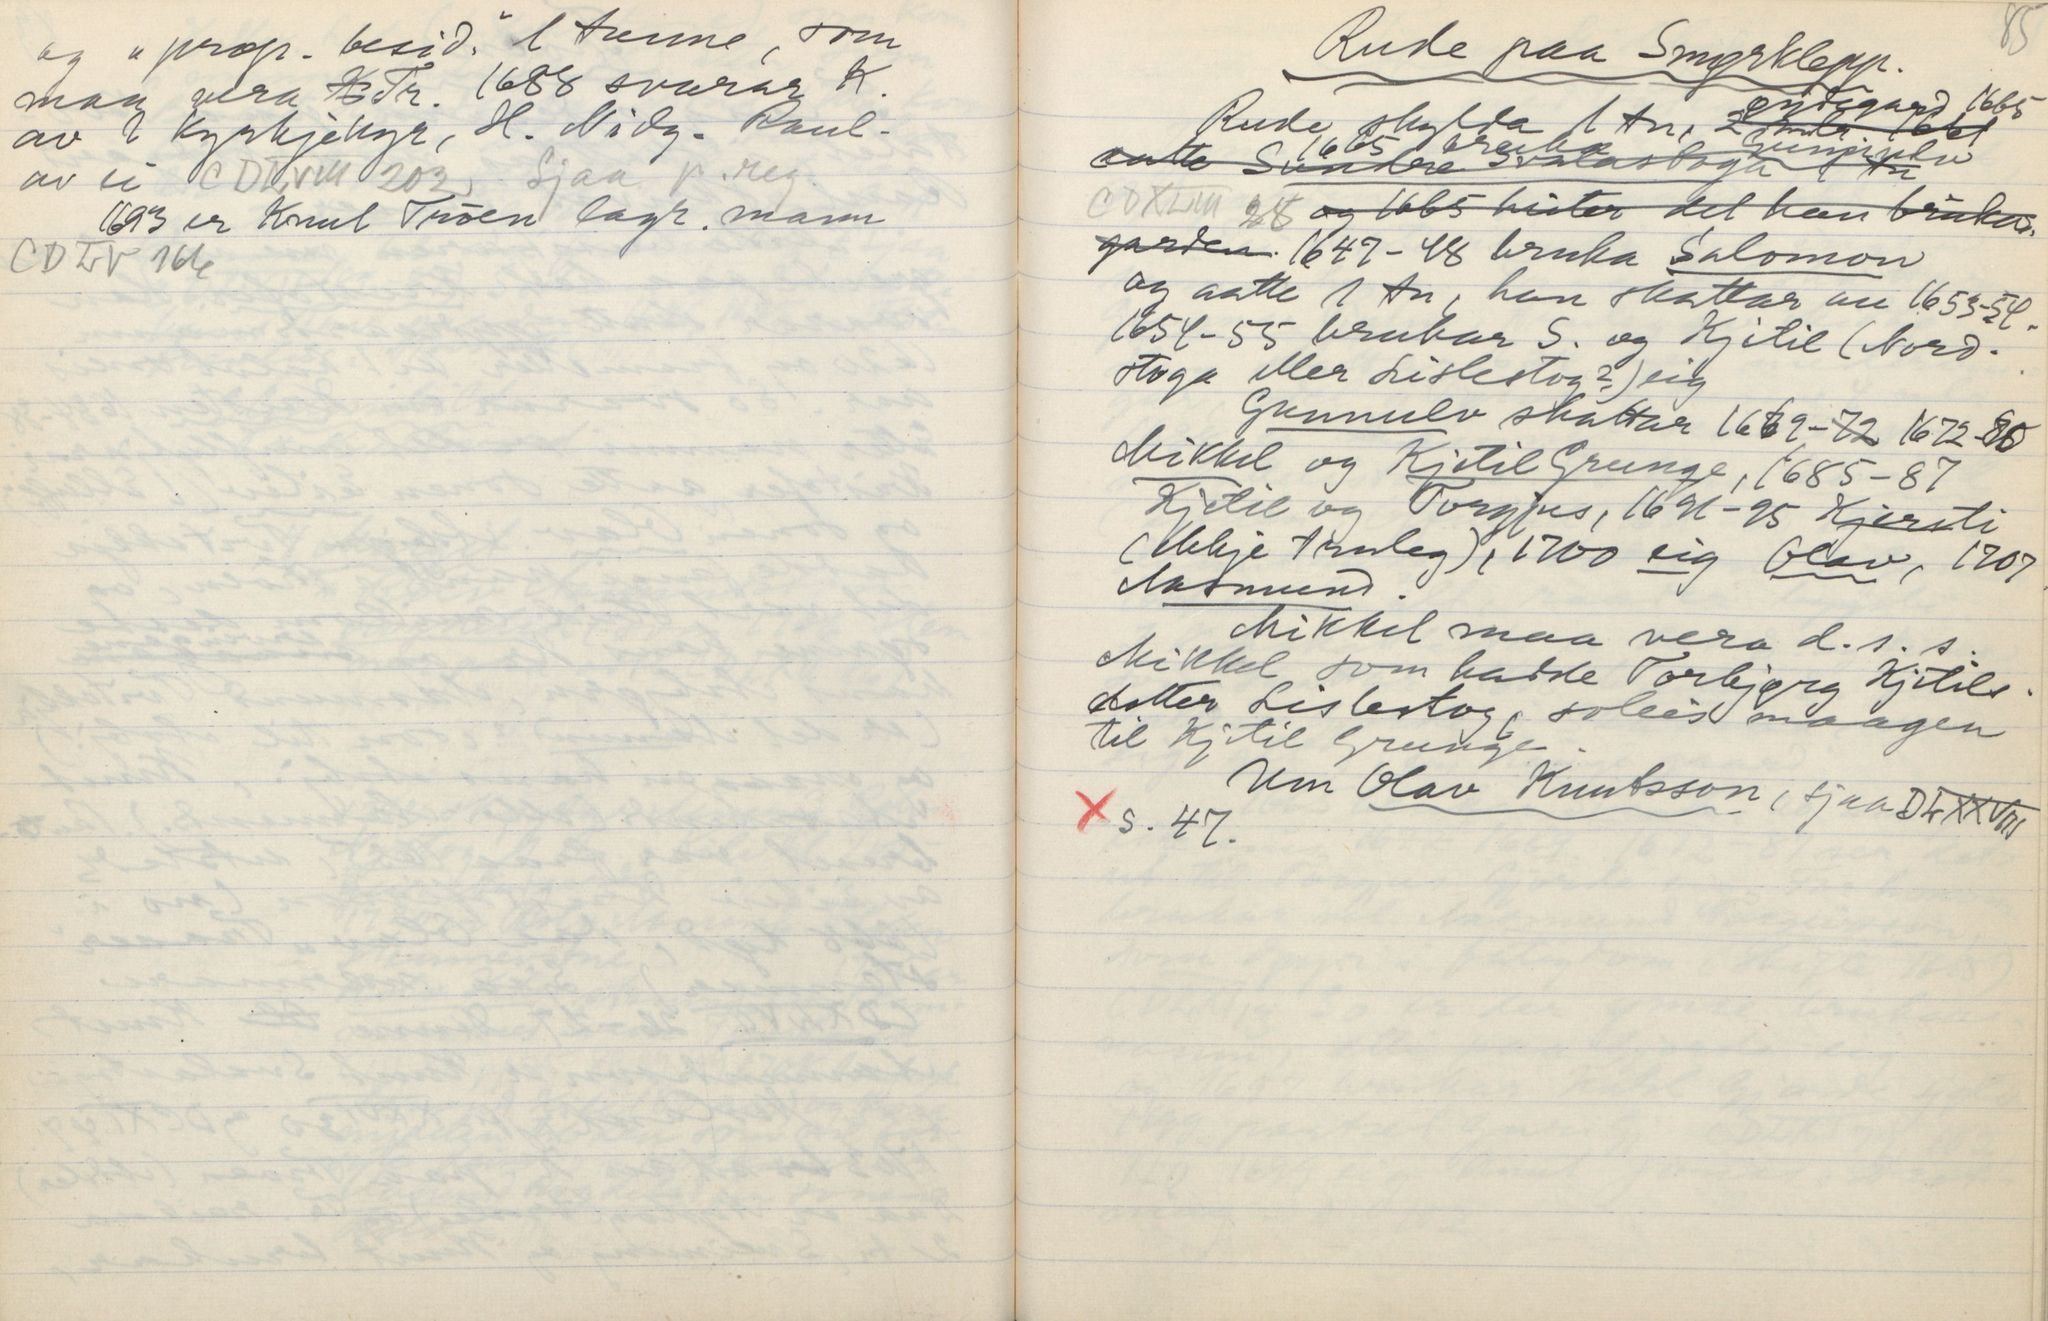 og "prop. besid." 1 tunne, som
maa vera Tr. 1688 svarar K.
av 1 kyrkjekyr, H. Nidg. Raul-
av ei CDLVIII 202. Sjaa p. reg.
1693 er Knut Trōen lagr. mann
CDLV 166
85
Rude paa Smyrklepp.
øydegard 1665
Rude skylda 1 tn, 1661
1665 bruka Gunnulv
aatte Søndre Svalastoga 1 tn
CDXLIII 28 og 1665 heiter det han bruka
garden. 1647-48 bruka Salomon
og aatte 1 tn, han skattar au 1653-54.
1654-55 brukar S. og Kjetil (Nord-
stoga eller Lislestog?) eig
Gunnulv skattar 1669-72 1672-80
Mikkel og Kjetil Grunge, 1685-87
Kjetil og Torgjus, 1691-95 Kjersti
(Ekkje truleg), 1700 eig Olav, 1707
Aasmund.
Mikkel maa vera d. s. s.
Mikkel som hadde Torbjørg Kjetils-
dotter Lislestog, soleis maagen
til Kjetil Grunge.
Um Olav Knutsson, sjaa DLXXVIII
X s. 47.